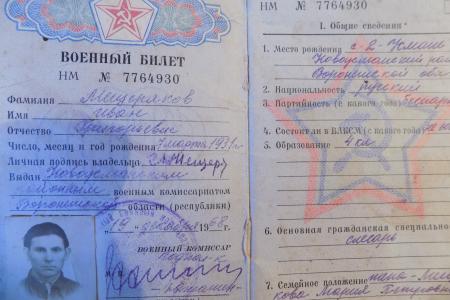 ВОЕННЫЙ БИЛЕТ
НМ № 7764930
Фамилия Мещеряков
Имя Иван
Отчество Григорьевич
Число, месяц и год рождения 7 марта 1931 г.
Личная подпись владельца
Выдан Новоусманским
районным военным комиссариатом
Воронежской области (республики)
19 декабря 1968
ВОЕННЫЙ КОМИССАР
подполк-к
НМ № 7764930
1. Общие сведения
1. Место рождения с-2-Усмань
Новоусманский рай
Воронежской обл
2. Национальность русский
3. Партийность (с какого года)
4. Состоит в ВЛКСМ (с какого года)
5. Образование 4 кл
6. Основная гражданская специально
слесарь
7. Семейное положение
кова Мария Петровна